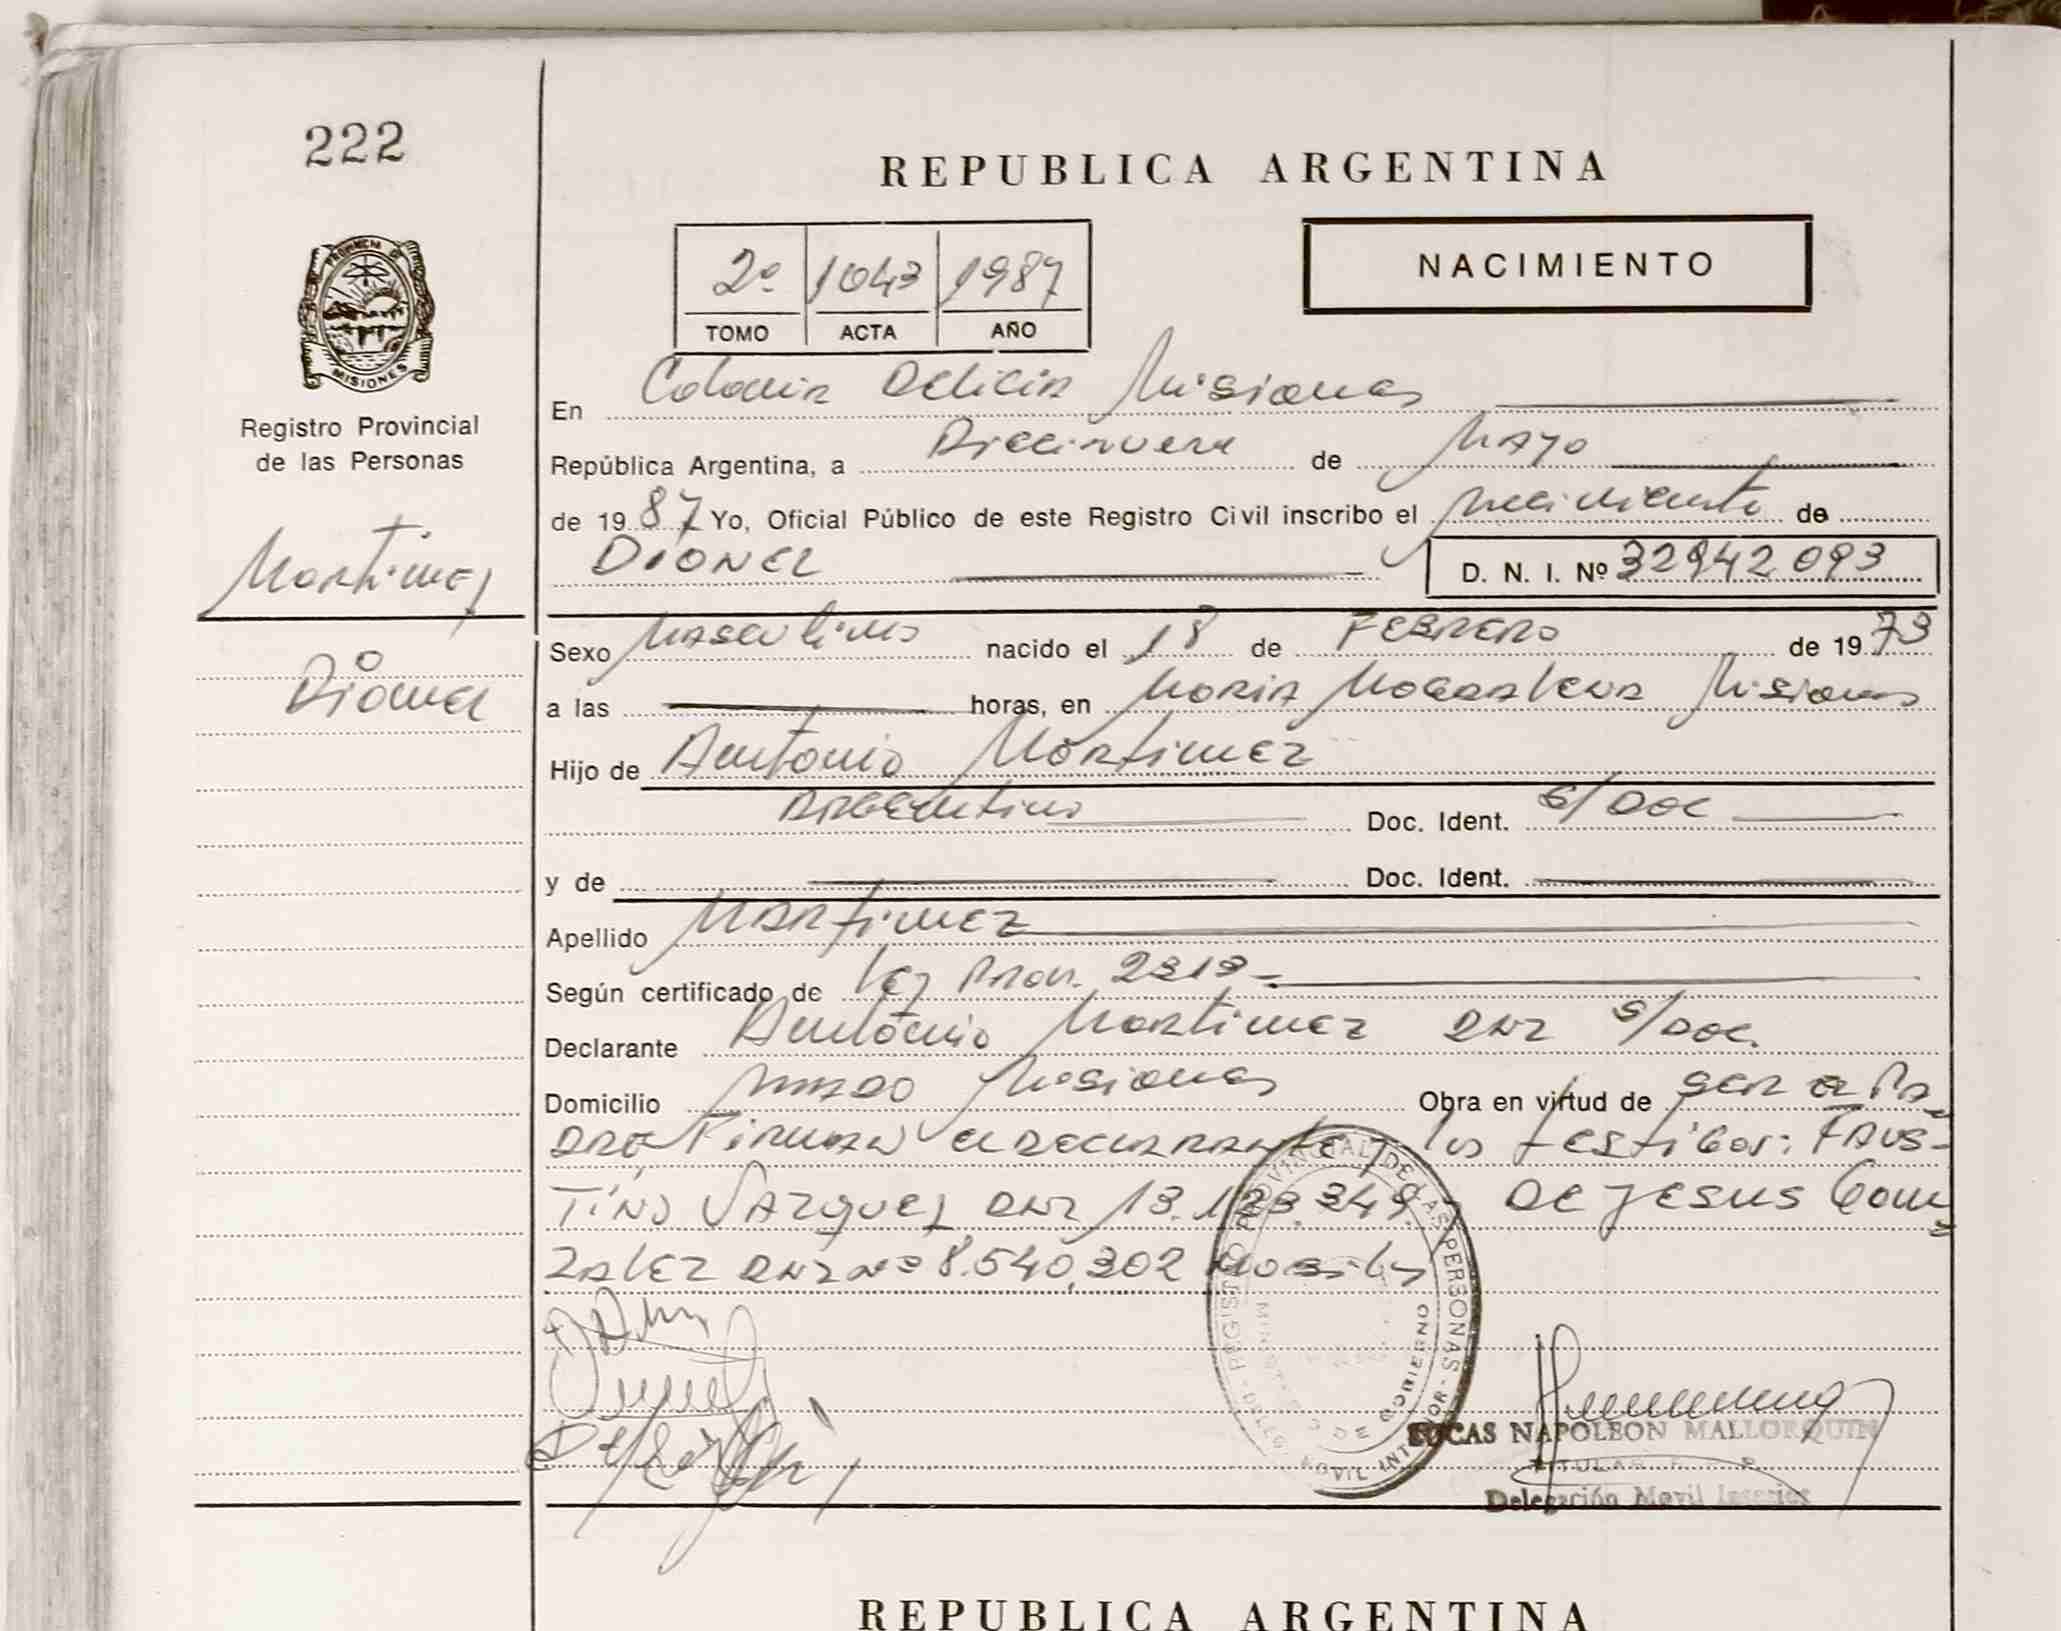 222
REPUBLICA ARGENTINA
NACIMIENTO
2º 1043 1987
TOMO ACTA AÑO
PROVINCIA DE MISIONES
Registro Provincial
de las Personas
Martinez
Dionel
En Colonia Delicia Misiones
República Argentina, a Diecinueve de Mayo
de 1987 Yo, Oficial Público de este Registro Civil inscribo el nacimiento de
DIONEL D. N. I. Nº 32942093
Sexo Masculino nacido el 18 de FEBRERO de 1973
a las horas, en Maria Magdalena Misiones
Hijo de Antonio Martinez
Argentino Doc. Ident. S/DOC
y de Doc. Ident.
Apellido Martinez
Según certificado de Ley Prov. 2319
Declarante Antonio Martinez DNI S/DOC.
Domicilio Misiones Obra en virtud de ser el Pa
dre Firman el declarante y los testigos: FAUS-
TINO VAZQUEZ DNI 13.123.349. DE JESUS Gon
ZALEZ DNI Nº 8.540.302
REGISTRO PROVINCIAL DE LAS PERSONAS
MINIST. DE GOBIERNO
DELEG. MOVIL INTERIOR
LUCAS NAPOLEON MALLORQUIN
TITULAR
Delegación Movil Interior
REPUBLICA ARGENTINA